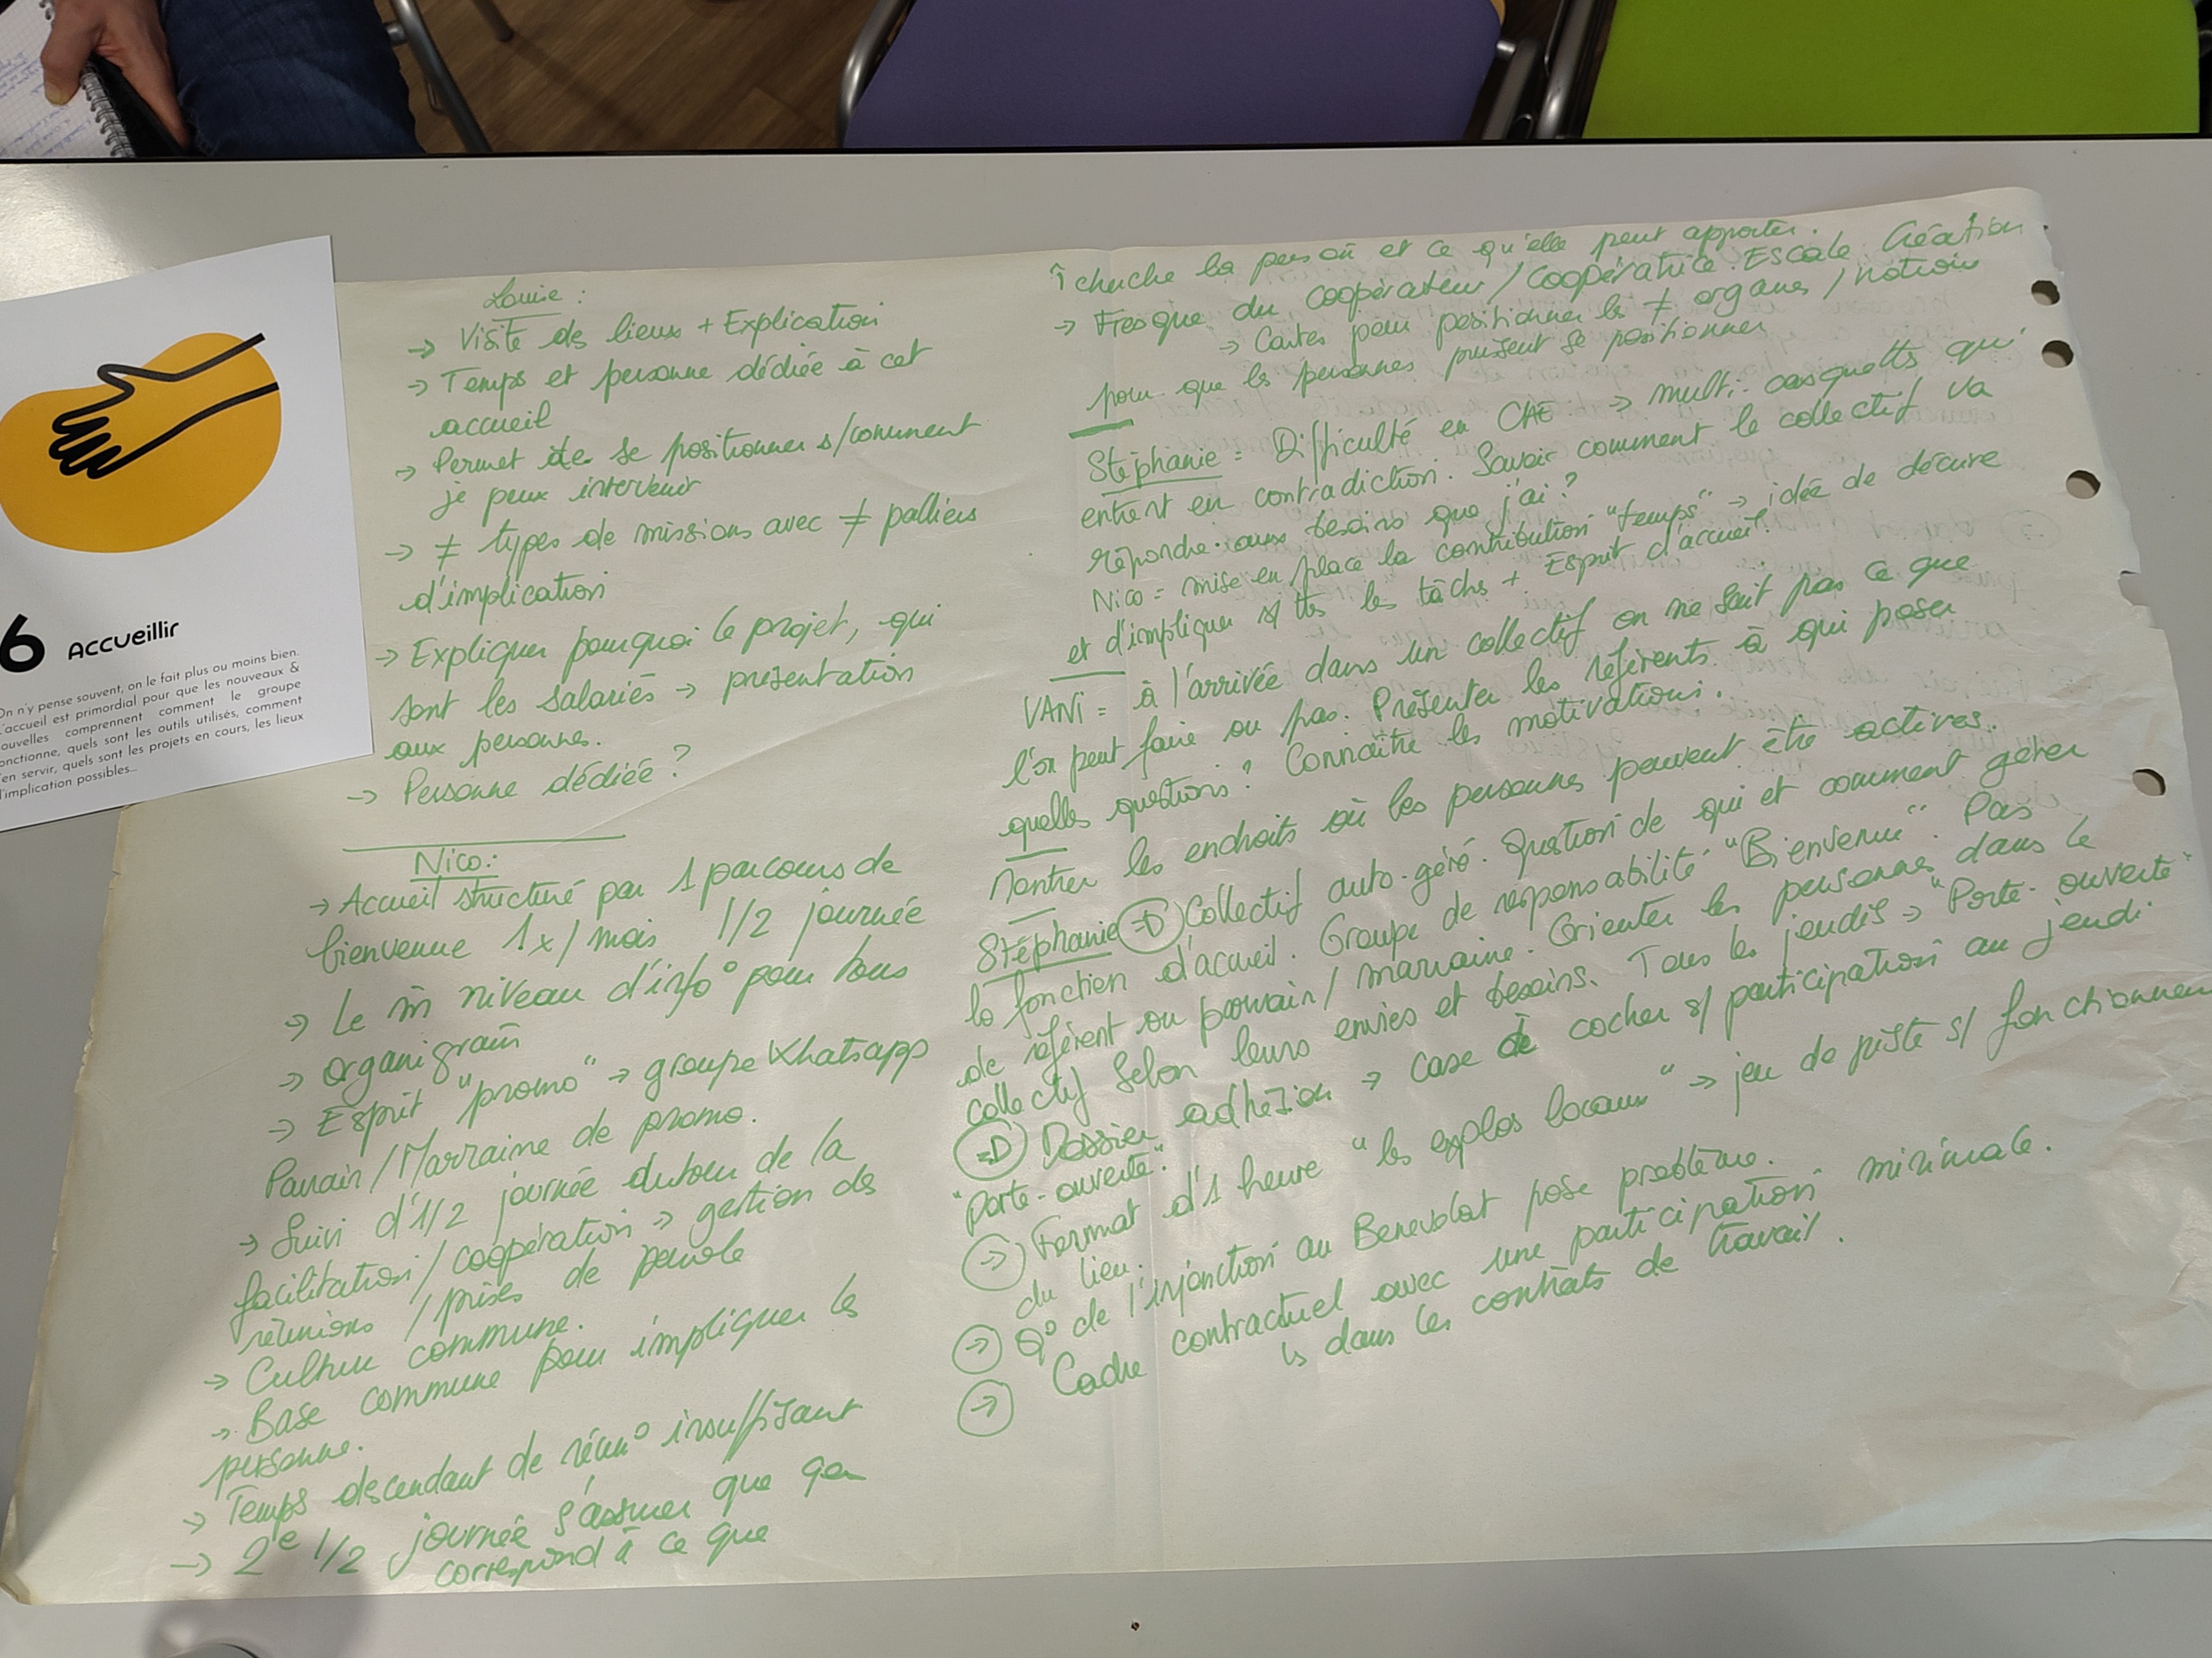 6 Accueillir
On n'y pense souvent, on le fait plus ou moins bien.
L'accueil est primordial pour que les nouveaux &
nouvelles comprennent comment le groupe
fonctionne, quels sont les outils utilisés, comment
s'en servir, quels sont les projets en cours, les lieux
d'implication possibles...
Louise :
→ Visite des lieux + Explication
→ Temps et personne dédiée à cet
accueil
→ Permet de se positionner s/comment
je peux intervenir
→ ≠ types de missions avec ≠ palliers
d'implication
→ Expliquer pourquoi le projet, qui
sont les salariés → présentation
aux personnes.
→ Personne dédiée ?
Nico :
→ Accueil structuré par 1 parcours de
bienvenue 1x/mois 1/2 journée
→ Le m̂ niveau d'info° pour tous
→ organigram̄
→ Esprit "promo" → groupe Whatsapp
Parrain/Marraine de promo.
→ Suivi d'1/2 journée autour de la
facilitation/coopération → gestion des
réunions / prises de parole
→ Culture commune.
→ Base commune pour impliquer les
personne.
→ Temps descendant de réun° insuffisant
→ 2e 1/2 journée s'assurer que ça
correspond à ce que
cherche la person̄ et ce qu'elle peut apporter.
→ Fresque du coopérateur/coopératrice. Escale Création
→ Cartes pour positionner les ≠ organes / notion
pour que les personnes puissent se positionner
Stéphanie = Difficulté en CAE → multi-casquettes qui
entrent en contradiction. Savoir comment le collectif va
répondre aux besoins que j'ai ?
Nico = mise en place la contribution "temps" → idée de décrire
et d'impliquer s/ tts les tâches + Esprit d'accueil.
VANI = à l'arrivée dans un collectif on ne sait pas ce que
l'on peut faire ou pas. Présenter les référents à qui poser
quelles questions ? Connaître les motivations.
Montrer les endroits où les personnes peuvent être actives.
Stéphanie ⇒ Collectif auto-géré. Question de qui et comment gérer
la fonction d'accueil. Groupe de responsabilité "Bienvenue". Pas
de référent ou parrain/marraine. Orienter les personnes dans le
collectif selon leurs envies et besoins. Tous les jeudis → "Porte-ouverte"
⇒ Dossier adhésion → case à cocher s/ participation au jeudi
"porte-ouverte".
→ Format d'1 heure "les explos locaux" → jeu de piste s/ fonctionnement
du lieu.
→ Q° de l'injonction au Bénévolat pose problème.
→ Cadre contractuel avec une participation minimale.
↳ dans les contrats de travail.